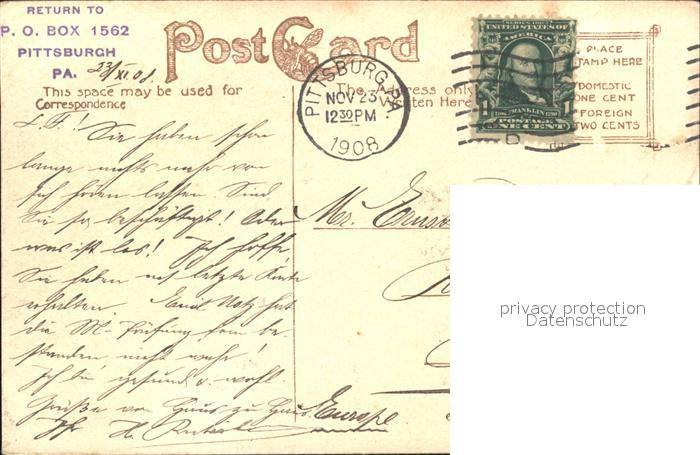 RETURN TO
P. O. BOX 1562
PITTSBURGH
PA. 23/XI. 08.
Post Card
This space may be used for
Correspondence
The Address only
Written Here
PITTSBURG, PA.
NOV 23
12 30 PM
1908
SERIES 1902
UNITED STATES OF
AMERICA
1 FRANKLIN 1
POSTAGE
ONE CENT
PLACE
STAMP HERE
DOMESTIC
ONE CENT
FOREIGN
TWO CENTS
L. F.! Sie haben schon
lange nichts mehr von
sich hören lassen. Sind
Sie so beschäftigt! Oder
was ist los! Ich hoffe,
Sie haben m. letzte Karte
erhalten. Emil Notz hat
die M-Prüfung be-
standen nicht wahr!
Ich bin gesund u. wohl.
Grüße von Haus zu Haus
Ihr H.
Mr.
Europe
privacy protection
Datenschutz